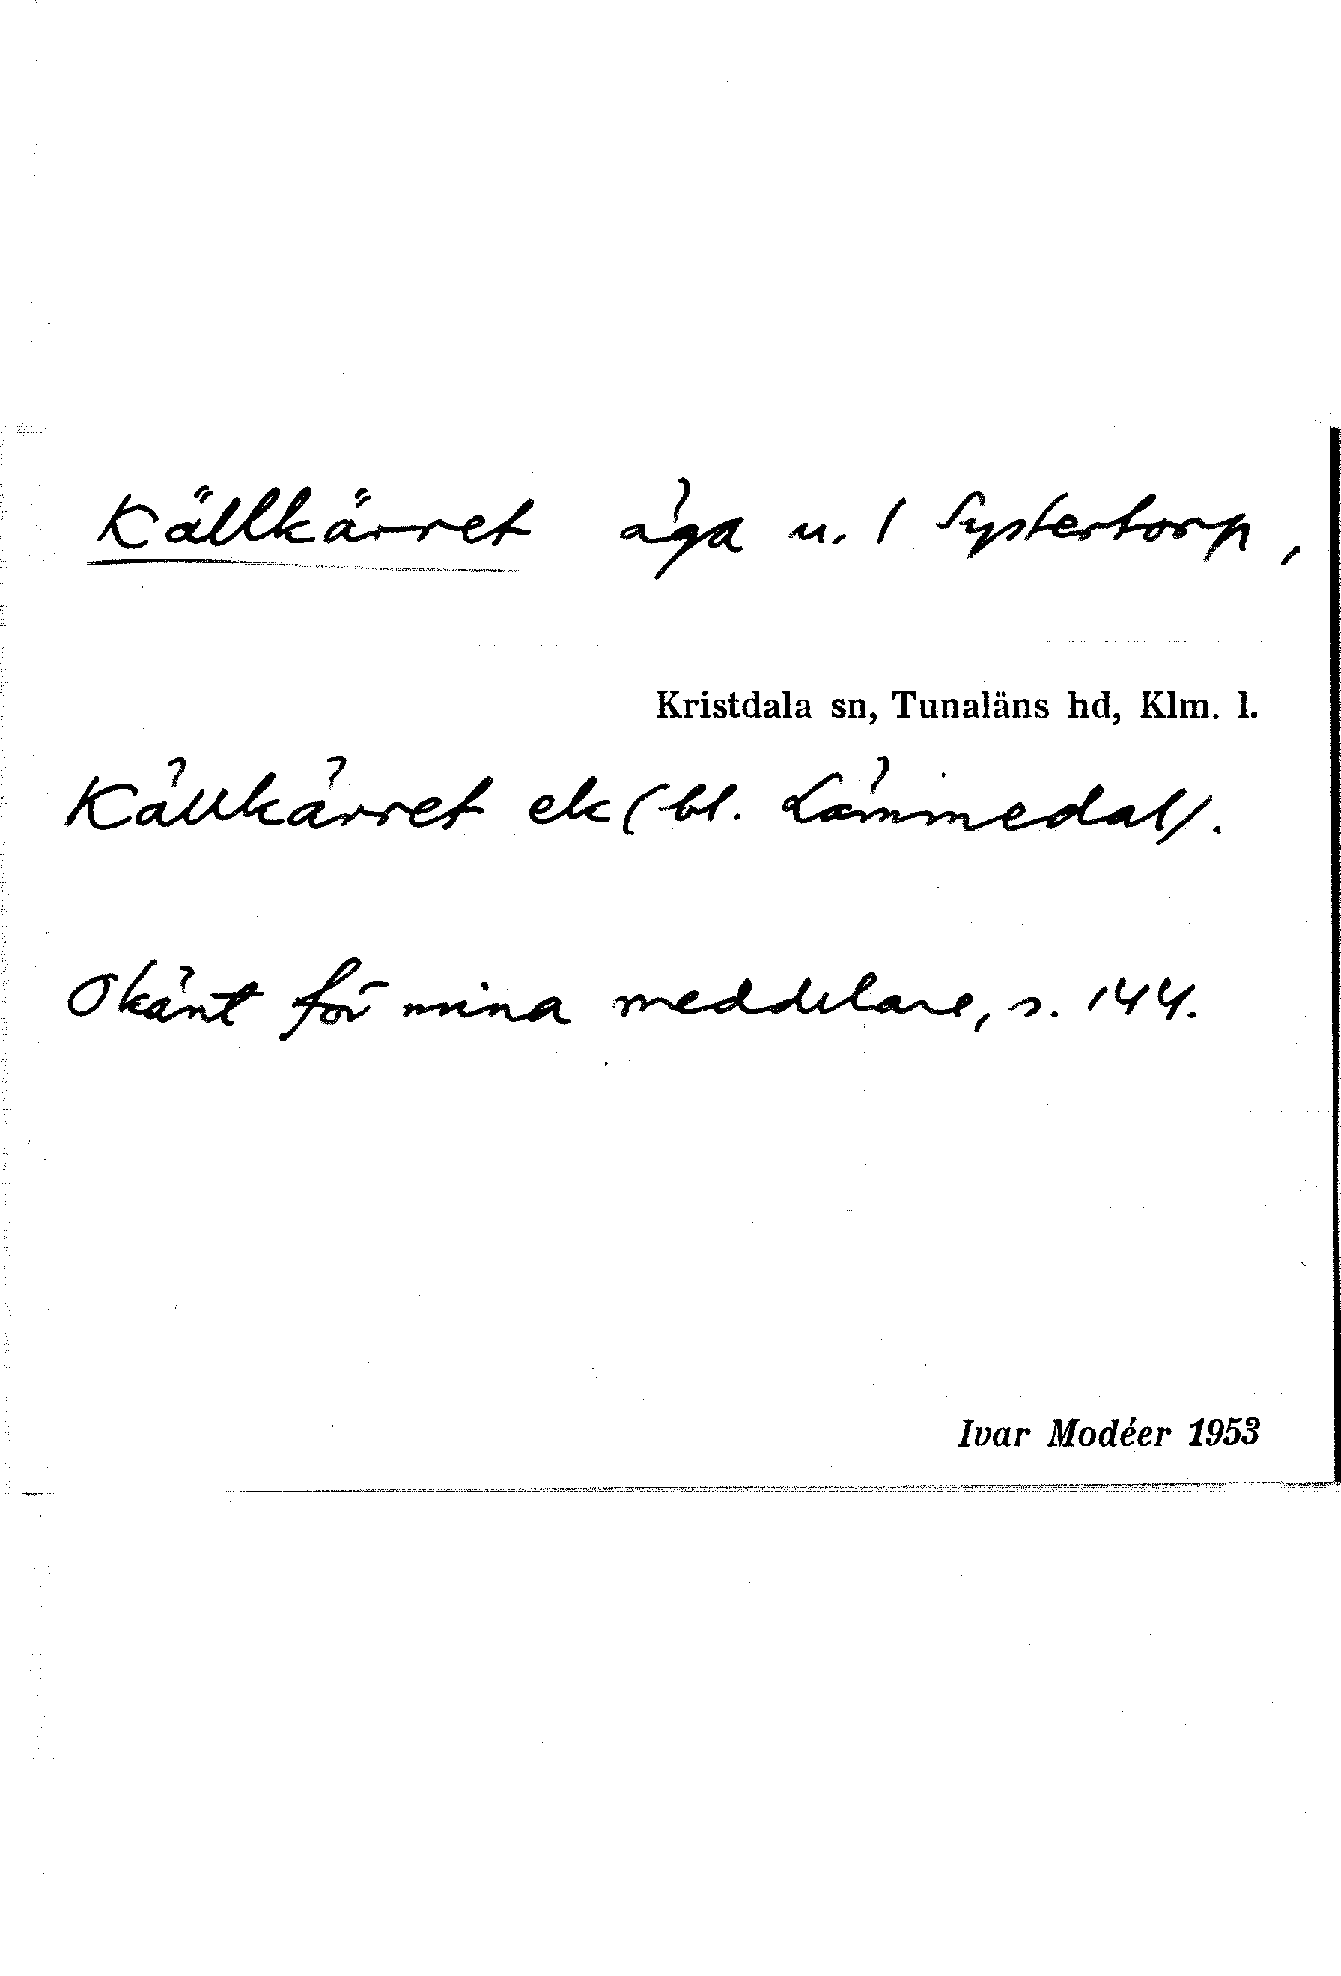 Källkärret äga u. 1 Systertorp,
Kristdala sn, Tunaläns hd, Klm. l.
Källkärret ek (bl. Lämmedal).
Okänt för mina meddelare, s. 144.
Ivar Modéer 1953